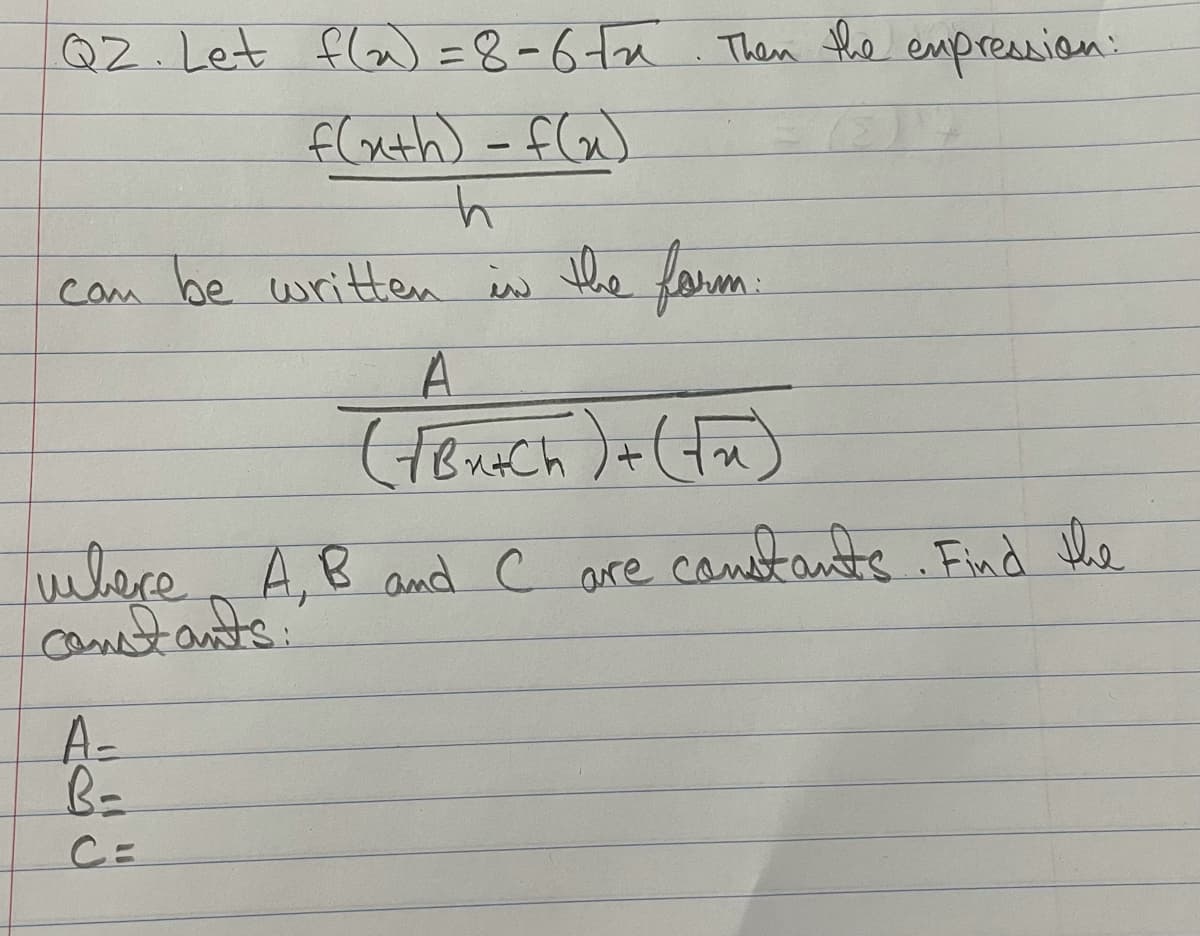 Q2. Let f(x) = 8 - 6√x . Then the expression:
f(x+h) - f(x)
h
can be written in the form:
A
(√Bx+Ch) + (√x)
where A, B and C are constants. Find the
constants:
A=
B=
C=